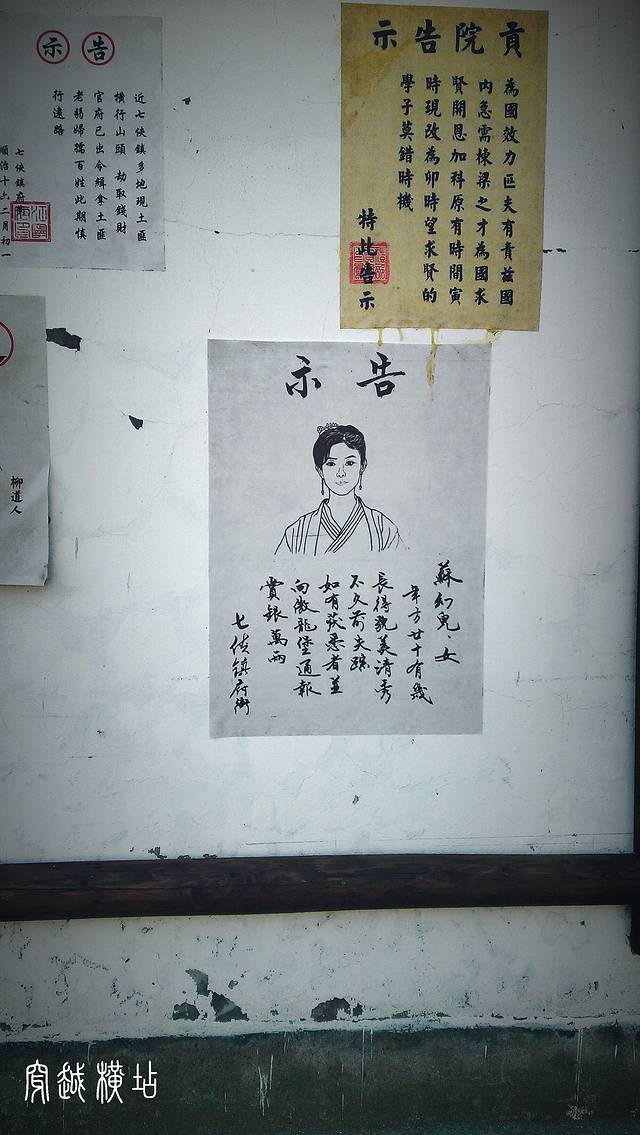 貢院告示
為國效力匹夫有責茲國
內急需棟梁之才為國求
賢開恩加科原有時間寅
時現改為卯時望求賢的
學子莫錯時機
特此告示
告示
近七俠鎮多地現土匪
橫行山頭 劫取錢財
官府已出令緝拿土匪
老弱婦孺百姓此期慎
行遠路
七俠鎮府
順治十六二月初一
告示
蘇幻兒、女
年方廿十有幾
長得貌美清秀
不久前失踪
如有获悉者並
向傲龍堡通報
賞银萬兩
七侠镇府衙
柳道人
穿越橫坫